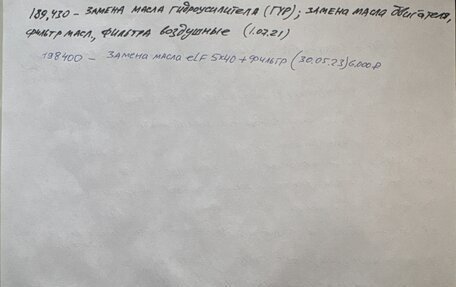 189,430 - ЗАМЕНА МАСЛА ГИДРОУСИЛИТЕЛЯ (ГУР); ЗАМЕНА МАСЛА ДВИГАТЕЛЯ,
ФИЛЬТР МАСЛ., ФИЛЬТРА ВОЗДУШНЫЕ (1.07.21)
198400 - ЗАМЕНА МАСЛА ELF 5x40 + ФИЛЬТР (30.05.23) 6.000 ₽